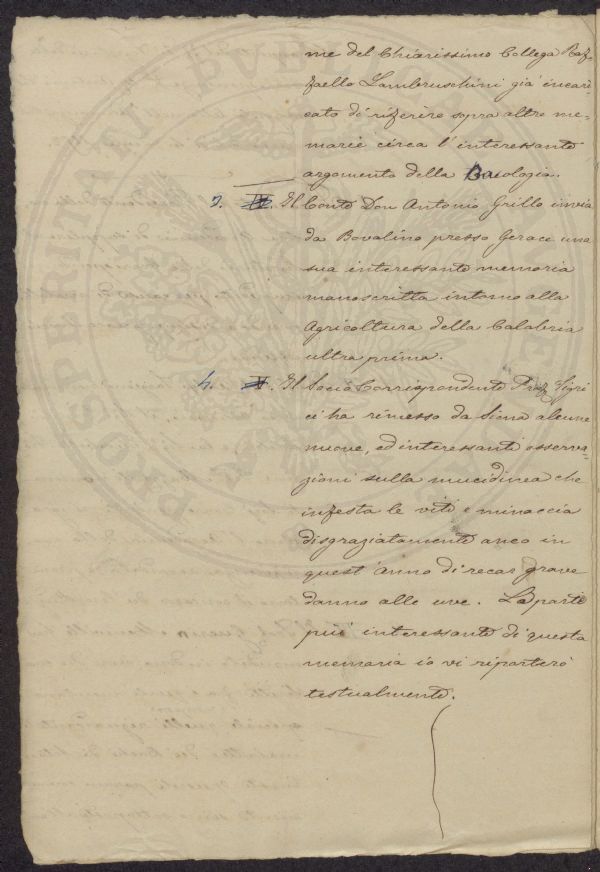 me del Chiarissimo Collega Raf-
faello Lambruschini già incari-
cato di riferire sopra altre me-
morie circa l'interessante
argomento della Bacologia.
3. IV. Il Conte Don Antonio Grillo invia
da Bovalino presso Gerace una
sua interessante memoria
manoscritta intorno alla
Agricoltura della Calabria
ultra prima.
4. V. Il Socio Corrispondente Prof. Tigri
ci ha rimesso da Siena alcune
nuove, ed interessanti osserva-
zioni sulla mucidinea che
infesta le viti e minaccia
disgraziatamente anco in
quest'anno di recar grave
danno alle uve. La parte
più interessante di questa
memoria io vi riporterò
testualmente.